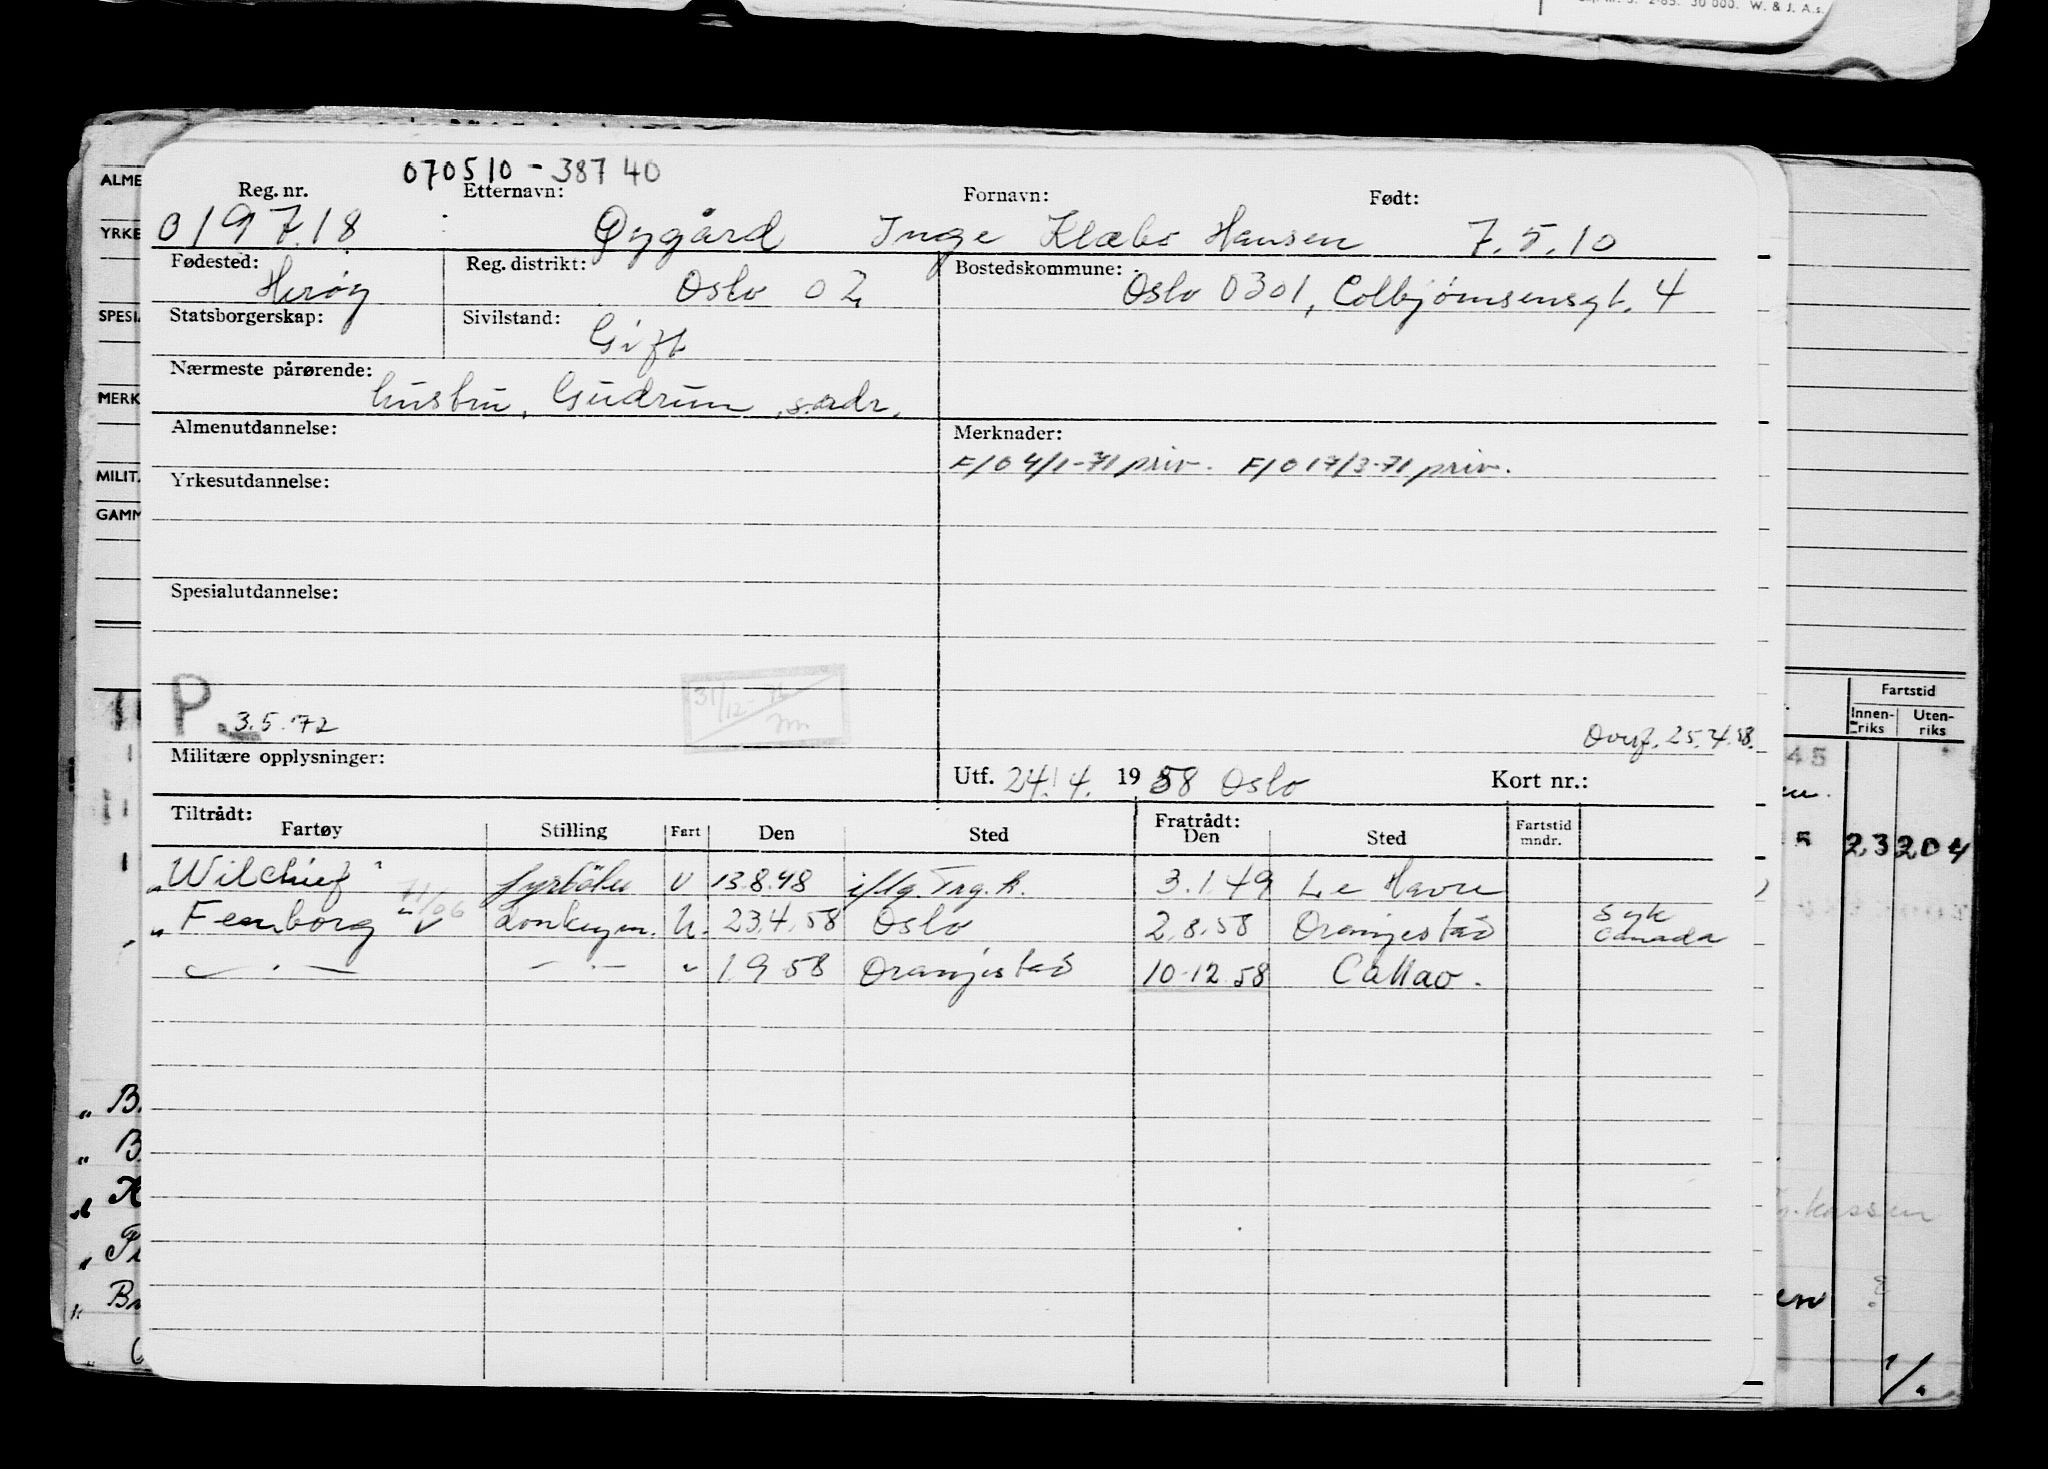 2-65. 30 000. W. & J. A.s.
070510-38740
Reg. nr. Etternavn: Fornavn: Født:
019718 Øygård Inge Klæbo Hansen 7.5.10
Fødested: Reg. distrikt: Bostedskommune:
Herøy Oslo 02 Oslo 0301, Colbjørnsensgt. 4
Statsborgerskap: Sivilstand:
Gift
Nærmeste pårørende:
hustru, Gudrun, s.adr.
Almenutdannelse: Merknader:
F/O 4/1-71 priv. F/O 17/3-71 priv.
Yrkesutdannelse:
Spesialutdannelse:
P. 3.5.72
31/12-
Overf. 25.4.58.
Militære opplysninger:
Utf. 24.4. 1958 Oslo Kort nr.:
Tiltrådt: Fratrådt:
Fartøy Stilling Fart Den Sted Den Sted Fartstid mndr.
" Wilchief fyrbøter U 13.8.48 iflg. Trg.k. 3.1.49 Le Havre
" Fernborg donkeym. U. 23.4.58 Oslo 2.8.58 Oranjestad Syk Canada
— . — — . — " 1.9.58 Oranjestad 10-12.58 Callao.
ALME
YRKE
SPESIA
MERK
MILITÆ
GAMM
Fartstid
Innen-riks Uten-riks
45
5 23 204
kassen
" B.
" B
" K
" Br
en